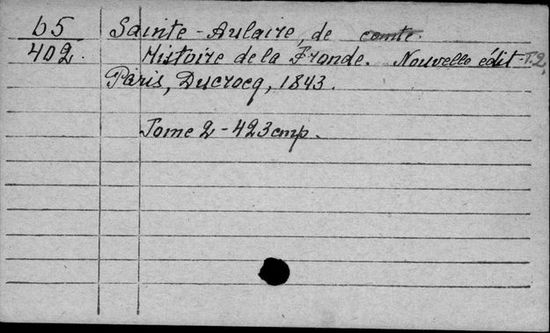 б5 Sainte-Aulaire, de comte.
402. Histoire de la Fronde. Nouvelle édit. T.2.
Paris, Ducrocq, 1843.
Tome 2 - 423 cmp.